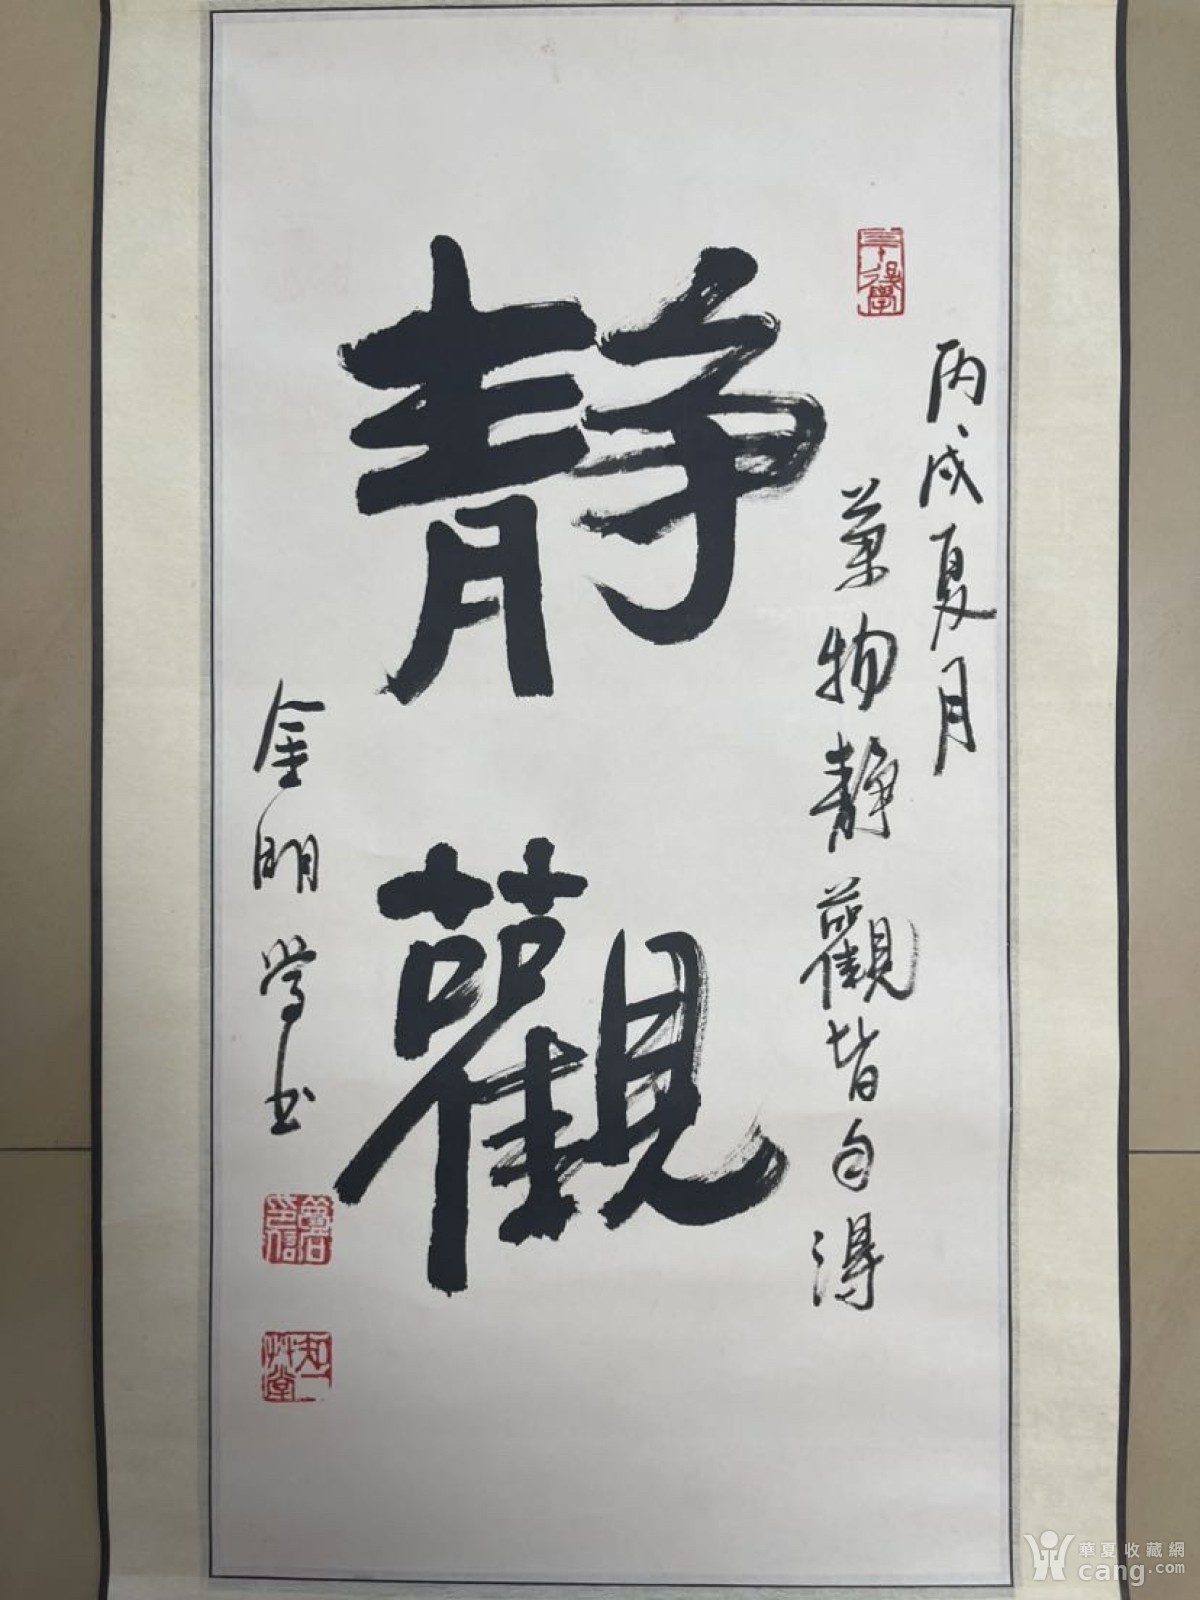 丙戌夏月
萬物靜觀皆自得
靜觀
金明
書
知一
草堂
華夏收藏網
cang.com